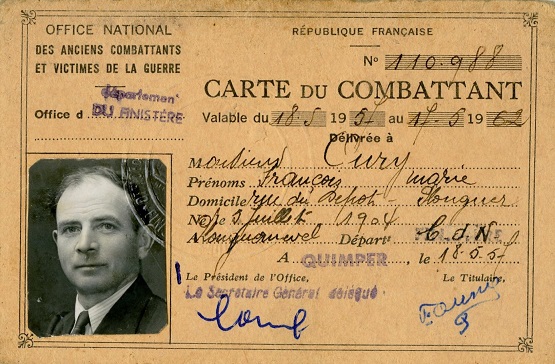 OFFICE NATIONAL
DES ANCIENS COMBATTANTS
ET VICTIMES DE LA GUERRE
Département
Office d DU FINISTÈRE
RÉPUBLIQUE FRANÇAISE
No 110.988
CARTE DU COMBATTANT
Valable du 18.5 195 au 17-5 1962
Délivrée à
Monsieur Cury
Prénoms François Marie
Domicile rue du Dépôt
Né le 3 juillet 1904
A Départt C d N
A QUIMPER, le 18.5.5
Le Président de l'Office, Le Titulaire,
Le Secrétaire Général délégué